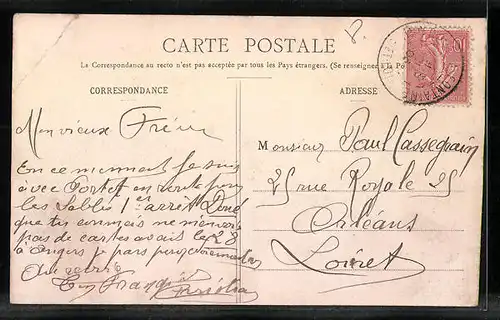 CARTE POSTALE
La Correspondance au recto n'est pas acceptée par tous les Pays étrangers. (Se renseigner à la Po
CORRESPONDANCE
ADRESSE
Mon vieux Frère
En ce moment je suis
avec Portet en route pour
les Sables 1er arrêt
que tu connais ne m'envoie
pas de cartes avant le 28
à Angers je pars
Au revoir
Ton François
Monsieur Paul Cassegrain
25 rue Royale 25
Orléans
Loiret
10